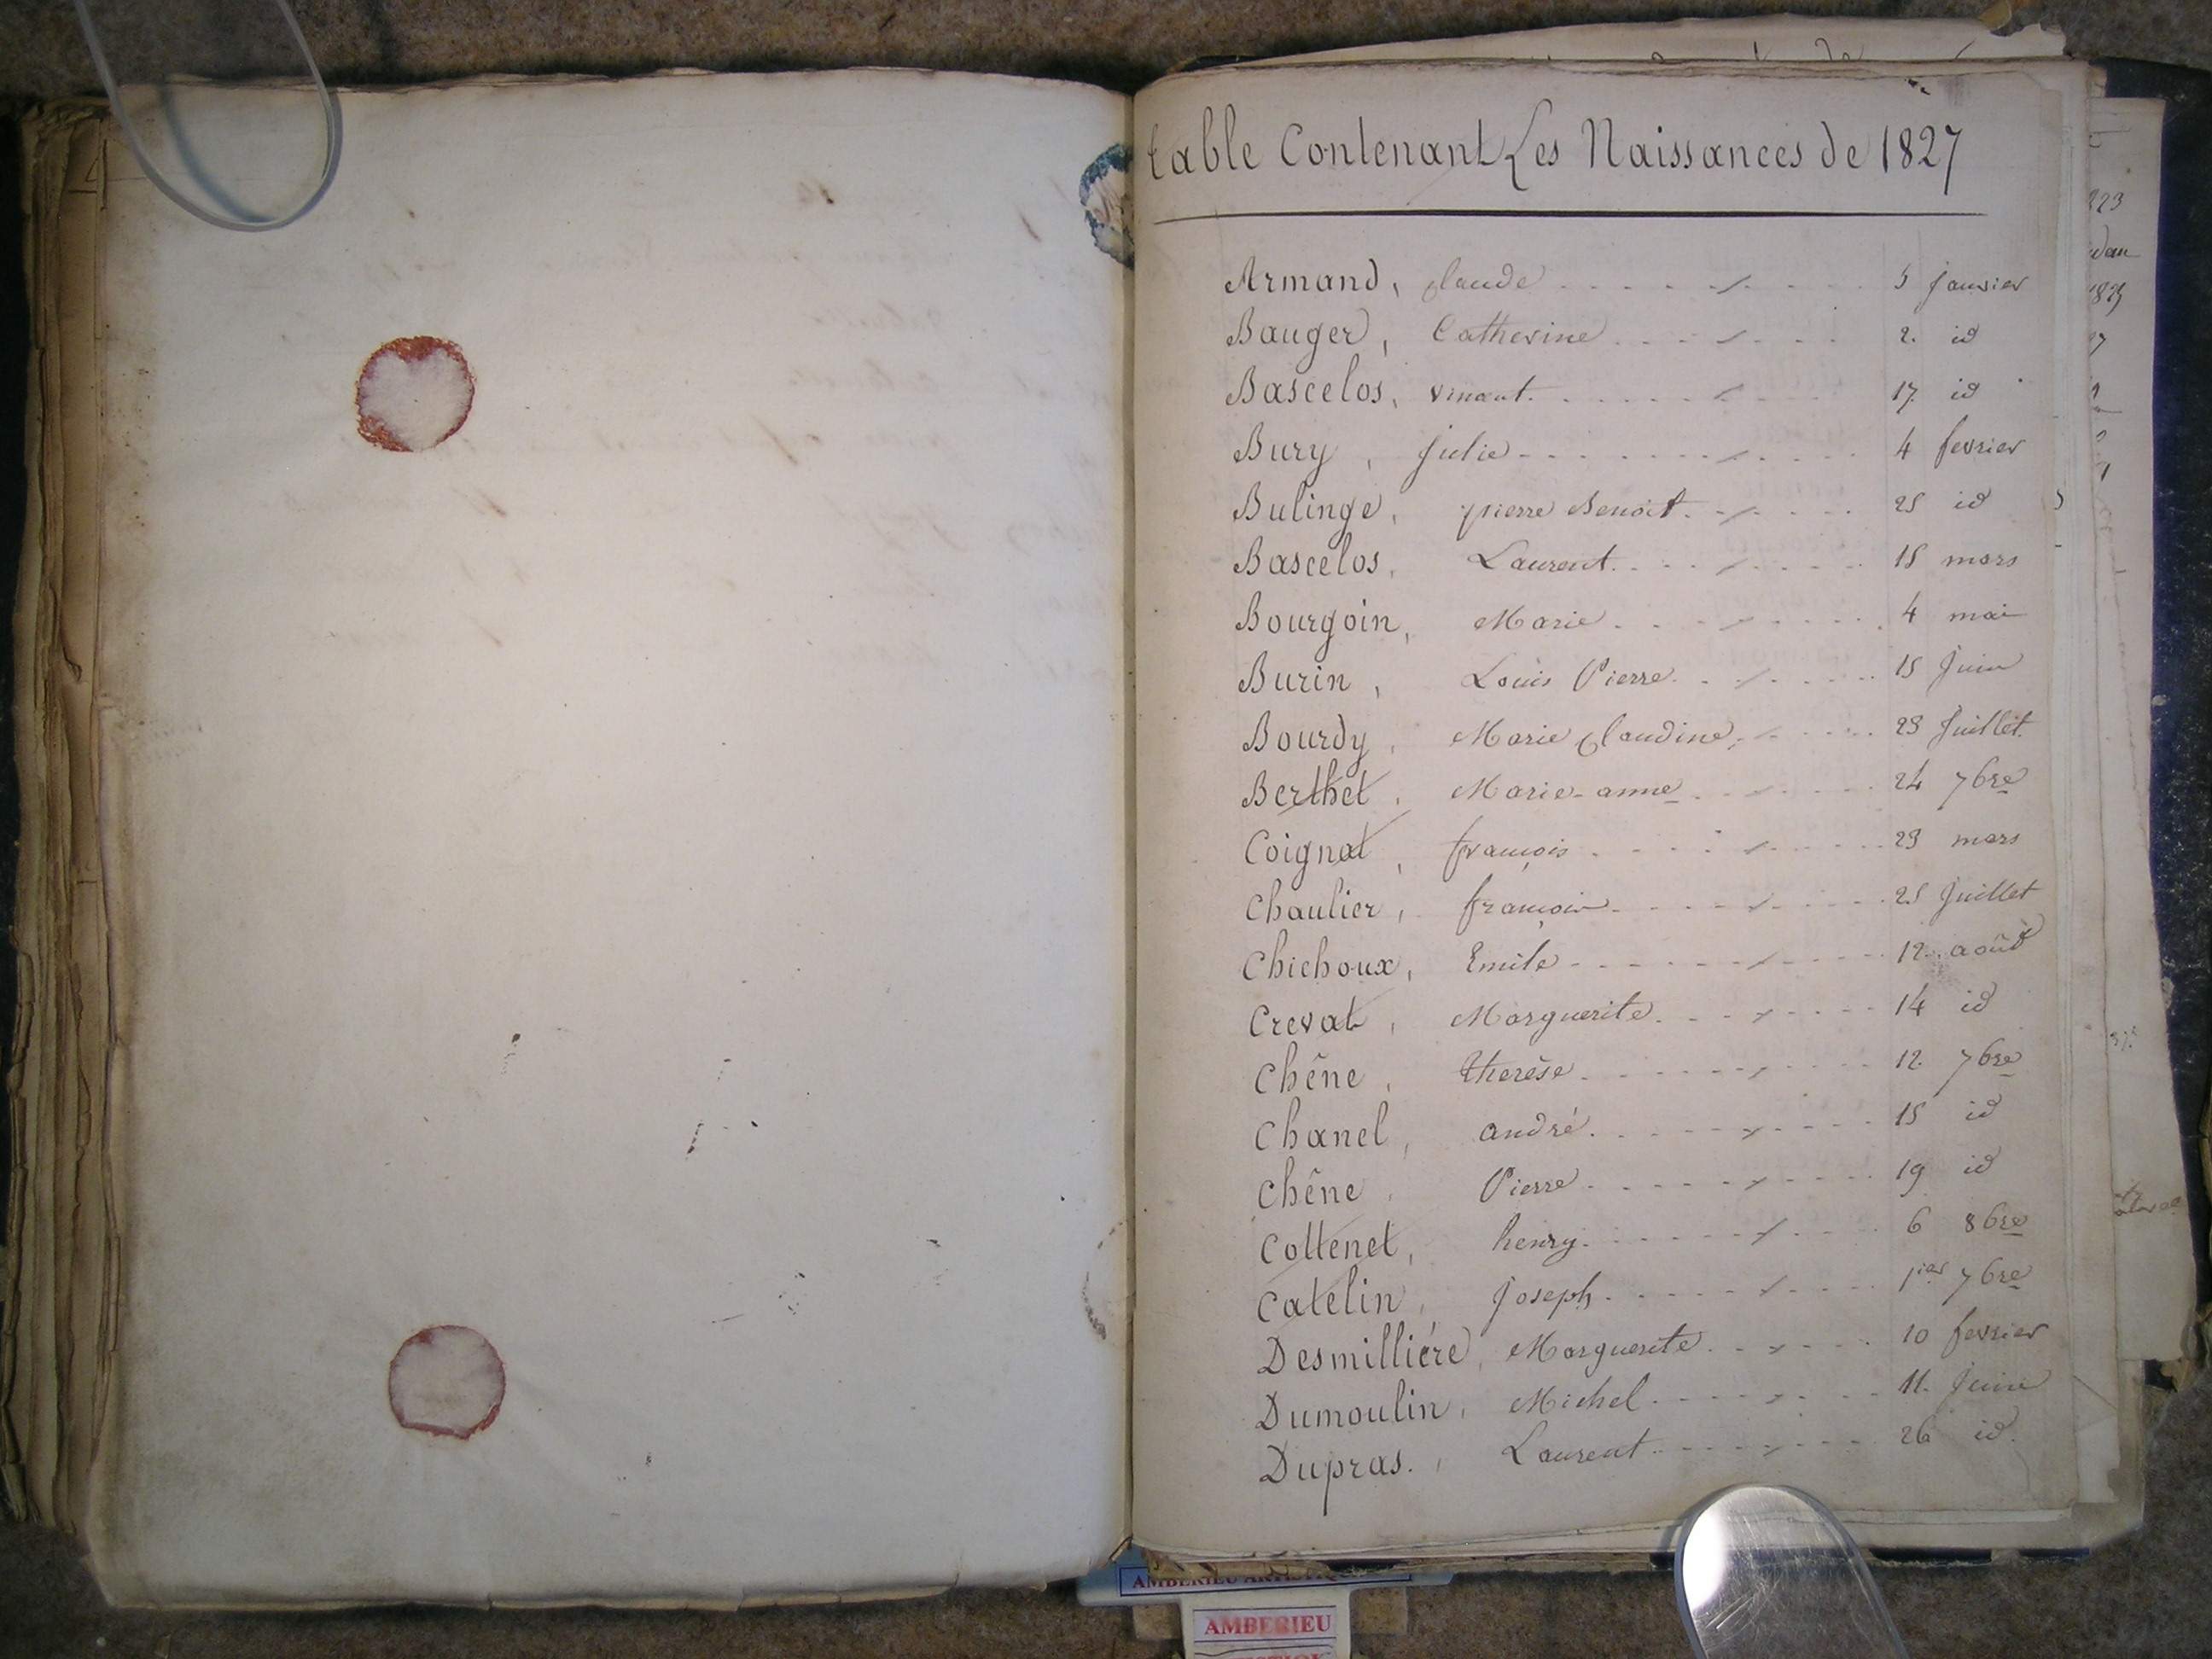 table Contenant Les Naissances de 1827
Armand, Claude 5 janvier
Bauger, Catherine 2. id
Bascelos, vincent. 17 id
Bury, Julie 4 fevrier
Bulinge, pierre Benoit. 25 id
Bascelos, Laurent. 15 mars
Bourgoin, Marie 4 mai
Burin, Louis Pierre 15 Juin
Bourdy, Marie Claudine, 23 Juillet.
Berthet, Marie-anne 24 7bre
Coignat, françois 23 mars
Chaulier, françois 25 Juillet
Chichoux, Emile 12 août
Crevat, Marguerite. 14 id
Chêne, therèse 12 7bre
Chanel, andré. 15 id
Chêne, Pierre 19 id
Cottenet, henry. 6 8bre
Catelin, Joseph 1ier 7bre
Desmilliére, Marguerite 10 fevrier
Dumoulin, Michel 11. Juin
Dupras., Laurent 26 id.
AMBERIEU